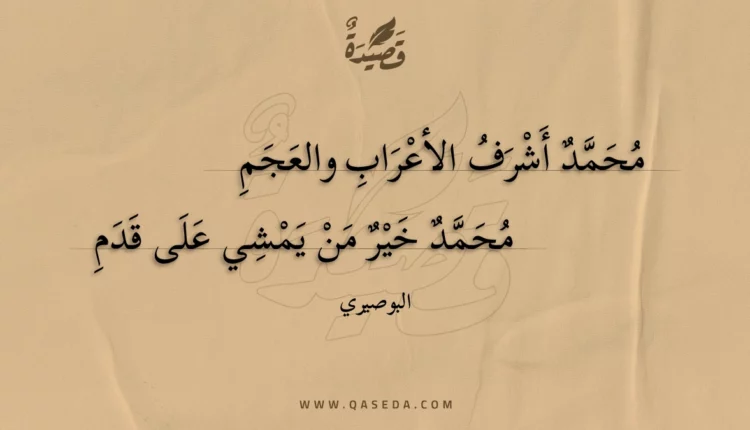 قَصِيدَةٌ
مُحَمَّدٌ أَشْرَفُ الأعْرَابِ والعَجَمِ
مُحَمَّدٌ خَيْرٌ مَنْ يَمْشِي عَلَى قَدَمِ
البوصيري
WWW.QASEDA.COM